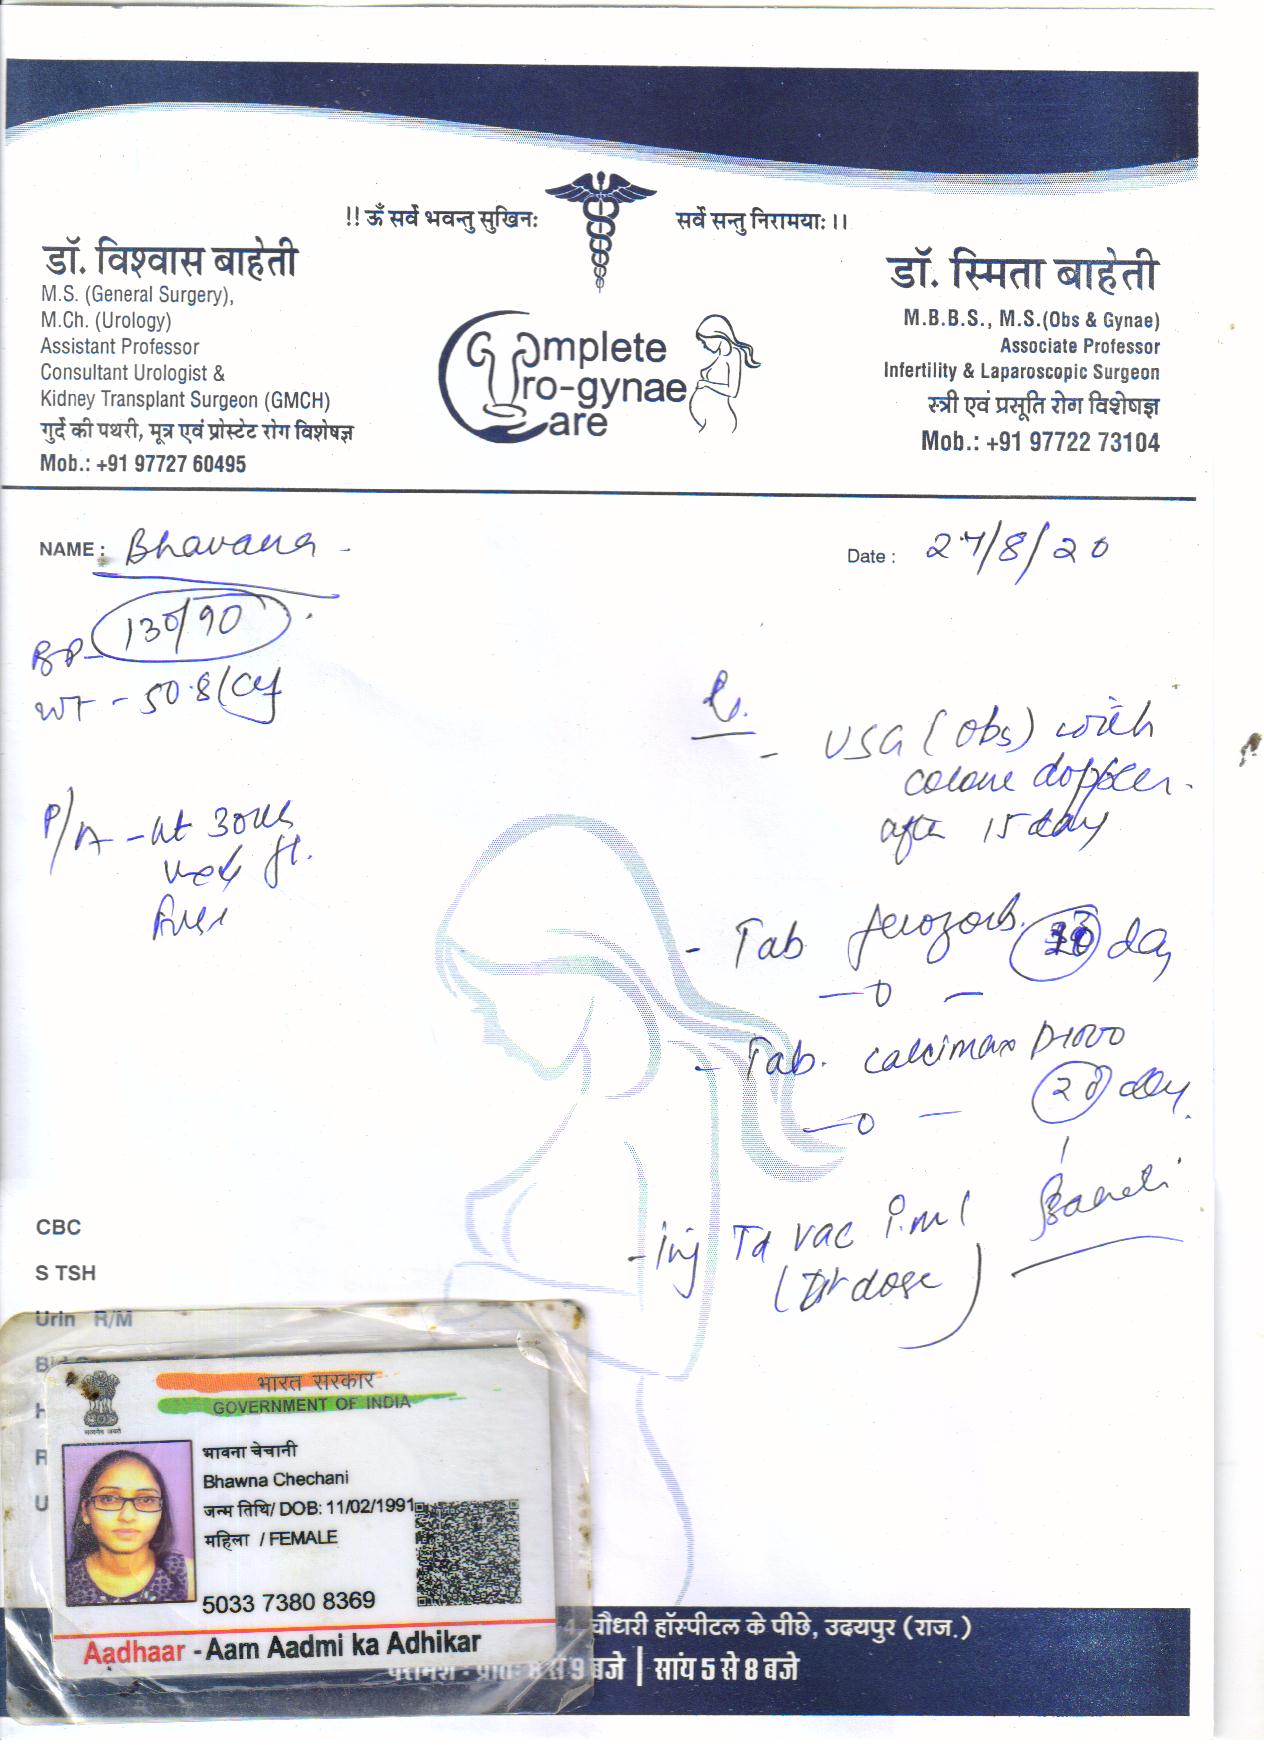 !! ॐ सर्वे भवन्तु सुखिनः
सर्वे सन्तु निरामयाः ।।
डॉ. विश्वास बाहेती
M.S. (General Surgery),
M.Ch. (Urology)
Assistant Professor
Consultant Urologist &
Kidney Transplant Surgeon (GMCH)
गुर्दे की पथरी, मूत्र एवं प्रोस्टेट रोग विशेषज्ञ
Mob.: +91 97727 60495
Complete
Uro-gynae
Care
डॉ. स्मिता बाहेती
M.B.B.S., M.S.(Obs & Gynae)
Associate Professor
Infertility & Laparoscopic Surgeon
स्त्री एवं प्रसूति रोग विशेषज्ञ
Mob.: +91 97722 73104
NAME : Bhavana
Date : 27/8/20
BP- 130/90
WT - 50.8
P/A - ut
USG (Obs) with
colour doppler
after 15 day
- Tab day
- Tab. calcimax D-1000
day
- inj Td vac i.m
dose
CBC
S TSH
Urin R/M
भारत सरकार
GOVERNMENT OF INDIA
सत्यमेव जयते
भावना चेचानी
Bhawna Chechani
जन्म तिथि/ DOB: 11/02/1991
महिला / FEMALE
5033 7380 8369
Aadhaar - Aam Aadmi ka Adhikar
चौधरी हॉस्पीटल के पीछे, उदयपुर (राज.)
9 बजे | सांय 5 से 8 बजे